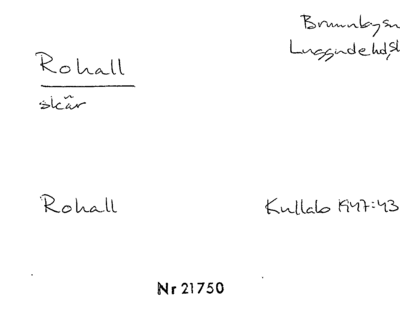 Brunnbysn
Luggudehd, sk
Rohall
skär
Rohall Kullabo 1947:43
Nr 21750